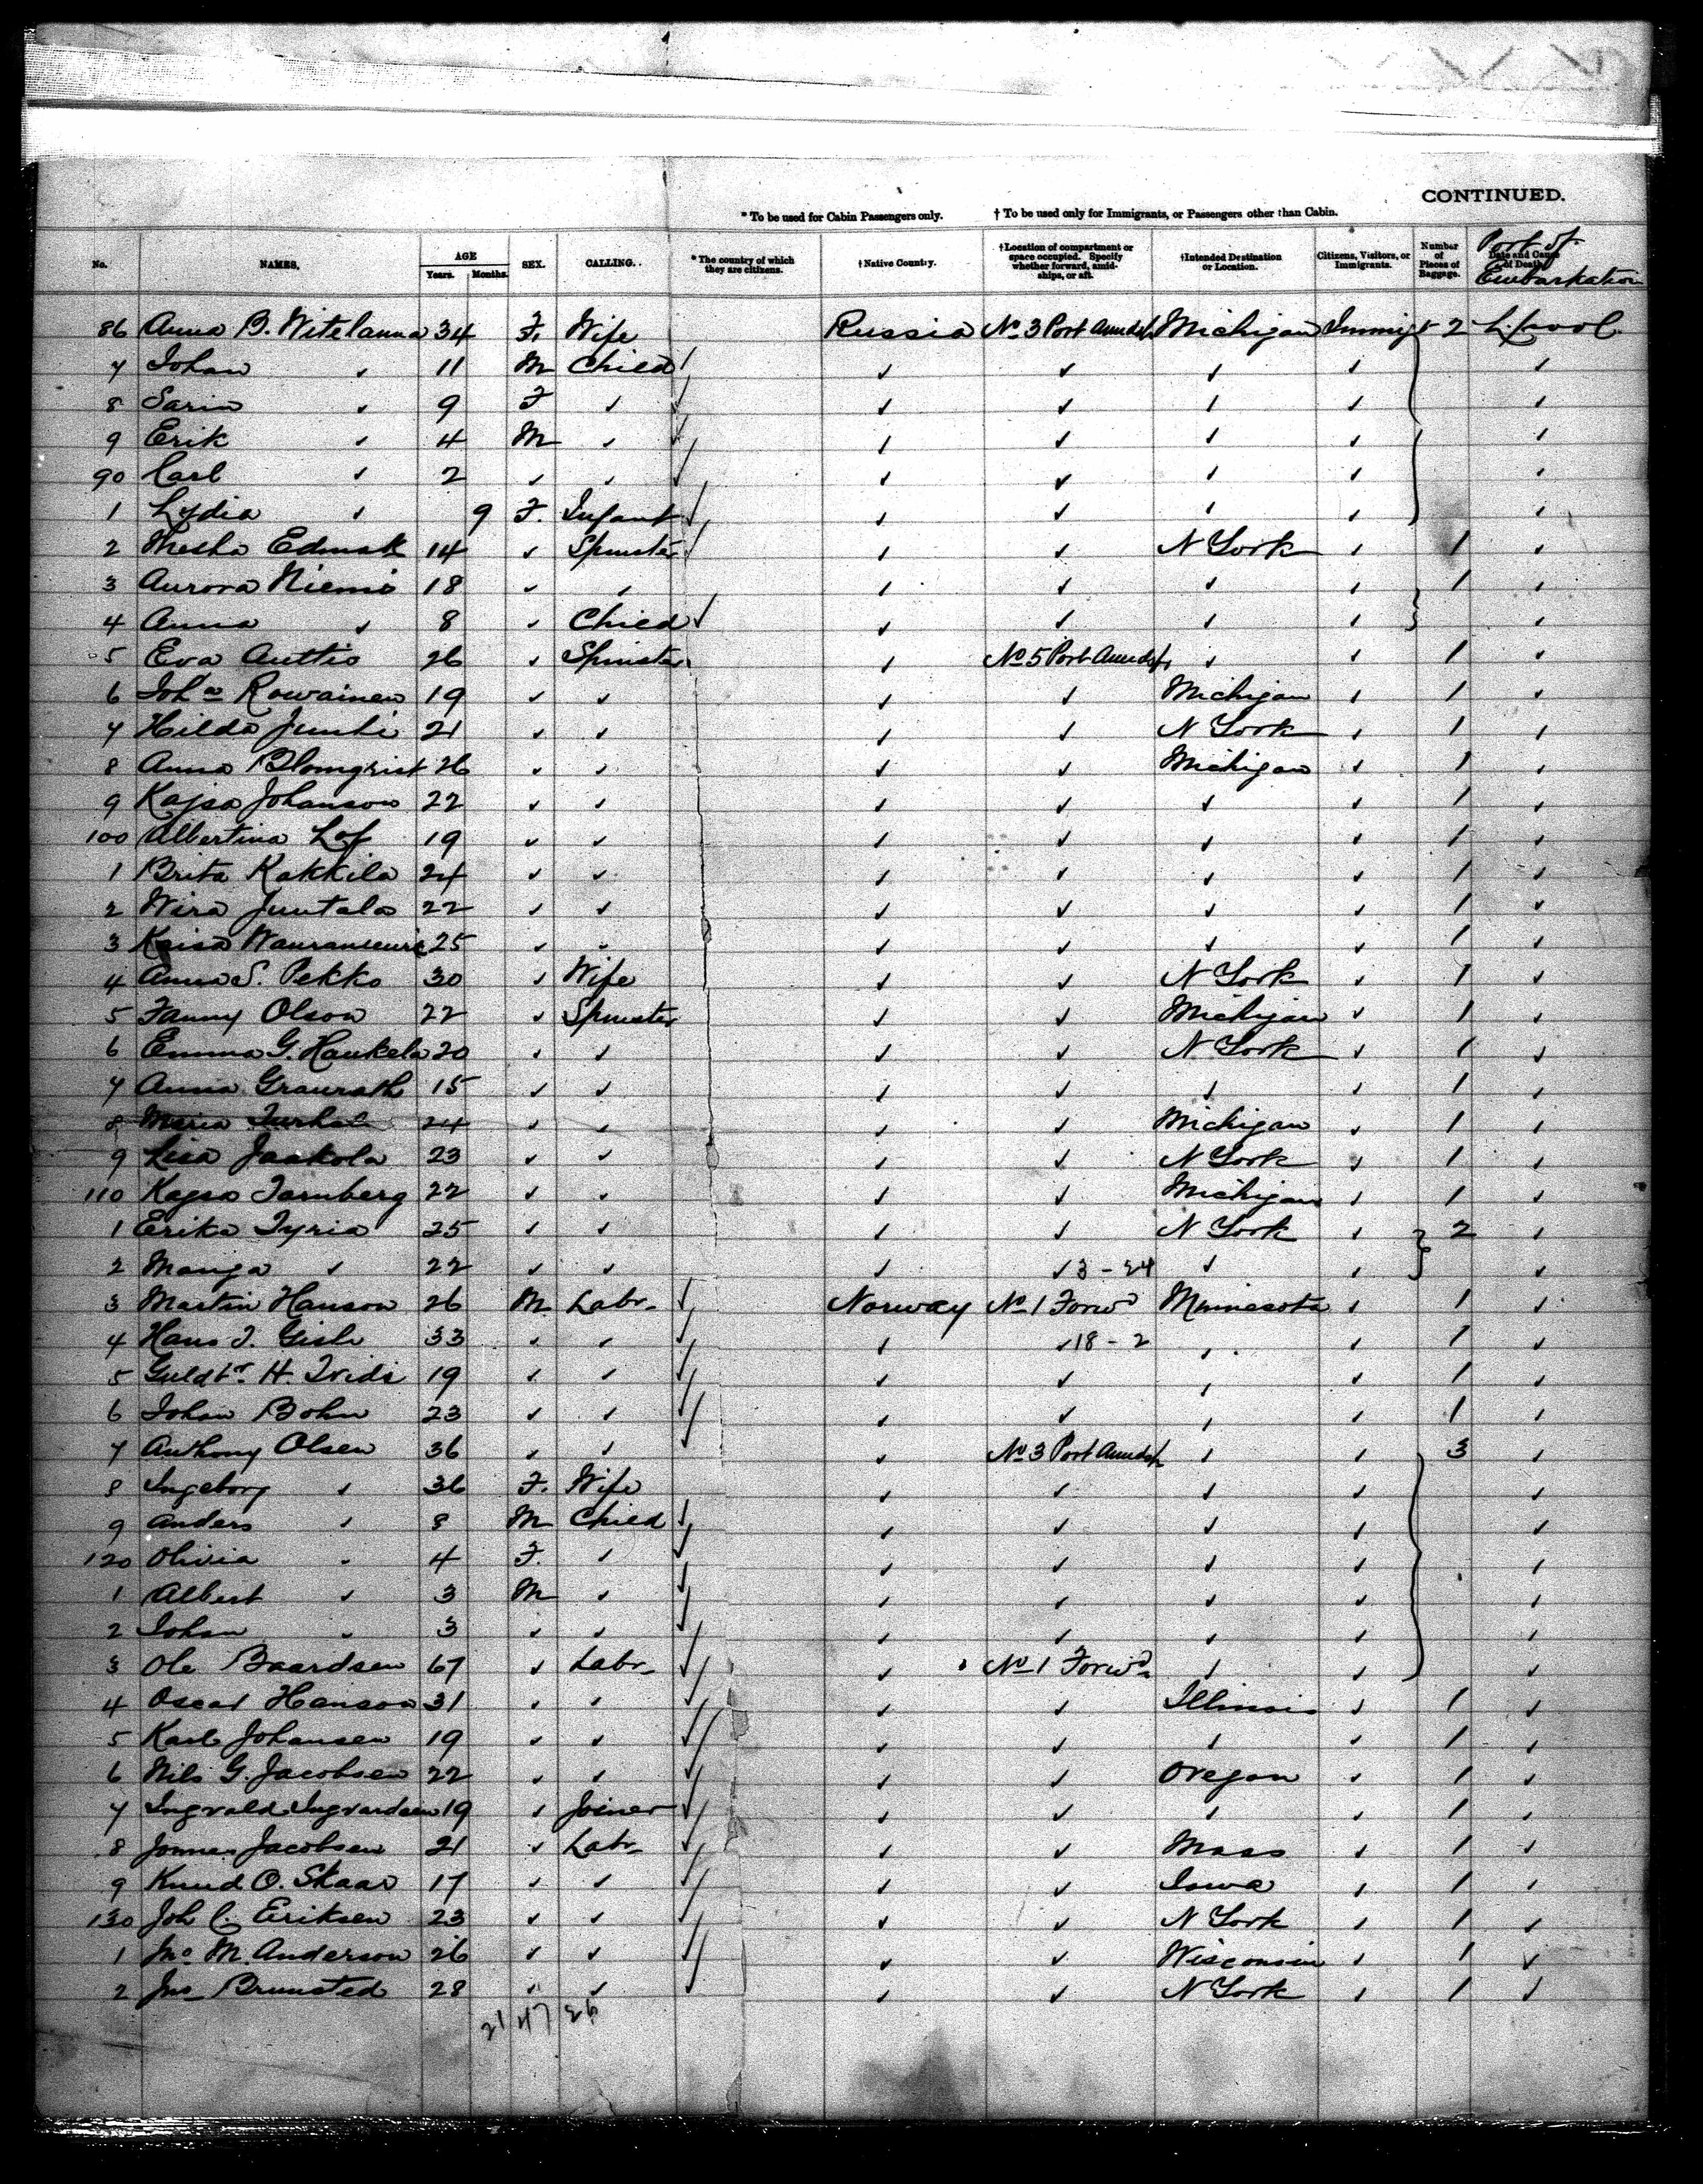 CONTINUED.
* To be used for Cabin Passengers only. † To be used only for Immigrants, or Passengers other than Cabin.
No. NAMES. AGE Years. Months. SEX. CALLING. * The country of which they are citizens. † Native Country. † Location of compartment or space occupied. Specify whether forward, amidships, or aft. † Intended Destination or Location. Citizens, Visitors, or Immigrants. Number of Pieces of Baggage. Date and Cause of Death. Port of Embarkation
86 Anna B. Witelanna 34 F. Wife Russia No 3 Port Amidsh Michigan Immigt 2 L.pool
7 Johan ✓ 11 M Child ✓ ✓ ✓ ✓ ✓ ✓
8 Sarin ✓ 9 F ✓ ✓ ✓ ✓ ✓ ✓ ✓
9 Erik ✓ 4 M ✓ ✓ ✓ ✓ ✓ ✓ ✓
90 Carl ✓ 2 ✓ ✓ ✓ ✓ ✓ ✓ ✓ ✓
1 Lydia ✓ 9 F. Infant ✓ ✓ ✓ ✓ ✓ ✓
2 Edmark 14 ✓ Spinster ✓ ✓ ✓ N York ✓ 1 ✓
3 Aurora Niemi 18 ✓ ✓ ✓ ✓ ✓ ✓ 1 ✓
4 Anna ✓ 8 ✓ Child ✓ ✓ ✓ ✓ ✓ ✓
5 Eva Auttio 26 ✓ Spinster ✓ No 5 Port Amidsh ✓ ✓ 1 ✓
6 Joha Rowainen 19 ✓ ✓ ✓ ✓ Michigan ✓ 1 ✓
7 Hilda Junti 21 ✓ ✓ ✓ ✓ N York ✓ 1 ✓
8 Anna Blomqvist 26 ✓ ✓ ✓ ✓ Michigan ✓ 1 ✓
9 Kajsa Johanson 22 ✓ ✓ ✓ ✓ ✓ ✓ 1 ✓
100 Albertina Lof 19 ✓ ✓ ✓ ✓ ✓ ✓ 1 ✓
1 Brita Kakkila 24 ✓ ✓ ✓ ✓ ✓ ✓ 1 ✓
2 Wira Juntala 22 ✓ ✓ ✓ ✓ ✓ ✓ 1 ✓
3 Kaisa 25 ✓ ✓ ✓ ✓ ✓ ✓ 1 ✓
4 Anna S. Pekko 30 ✓ Wife ✓ ✓ N York ✓ 1 ✓
5 Fanny Olson 22 ✓ Spinster ✓ ✓ Michigan ✓ 1 ✓
6 Emma G. Haukela 20 ✓ ✓ ✓ ✓ N York ✓ 1 ✓
7 Anna Granrath 15 ✓ ✓ ✓ ✓ ✓ ✓ 1 ✓
8 Maria 24 ✓ ✓ ✓ ✓ Michigan ✓ 1 ✓
9 Lisa Jaakola 23 ✓ ✓ ✓ ✓ N York ✓ 1 ✓
110 Kajsa Tarnberg 22 ✓ ✓ ✓ ✓ Michigan ✓ 1 ✓
1 Erika Tyria 25 ✓ ✓ ✓ ✓ N York ✓ 2 ✓
2 Manga ✓ 22 ✓ ✓ ✓ ✓ 3 - 24 ✓ ✓ ✓
3 Martin Hanson 26 M Labr ✓ Norway No 1 Forwd Minnesota ✓ 1 ✓
4 Hans J. Gish 33 ✓ ✓ ✓ ✓ ✓ 18 - 2 ✓ ✓ 1 ✓
5 H. 19 ✓ ✓ ✓ ✓ ✓ ✓ ✓ 1 ✓
6 Johan Bohn 23 ✓ ✓ ✓ ✓ ✓ ✓ ✓ 1 ✓
7 Anthony Olsen 36 ✓ ✓ ✓ ✓ No 3 Port Amidsh ✓ ✓ 3 ✓
8 Ingeborg ✓ 36 F. Wife ✓ ✓ ✓ ✓ ✓
9 Anders ✓ 8 M Child ✓ ✓ ✓ ✓ ✓ ✓
120 Olivia ✓ 4 F. ✓ ✓ ✓ ✓ ✓ ✓ ✓
1 Albert ✓ 3 M ✓ ✓ ✓ ✓ ✓ ✓ ✓
2 Johan ✓ 3 ✓ ✓ ✓ ✓ ✓ ✓ ✓ ✓
3 Ole Baardsen 67 ✓ Labr ✓ ✓ No 1 Forwd ✓ ✓ ✓
4 Oscar Hanson 31 ✓ ✓ ✓ ✓ ✓ Illinois ✓ 1 ✓
5 Karl Johansen 19 ✓ ✓ ✓ ✓ ✓ ✓ ✓ 1 ✓
6 Nils G. Jacobsen 22 ✓ ✓ ✓ ✓ ✓ Oregon ✓ 1 ✓
7 Ingvald Ingvardsen 19 ✓ Joiner ✓ ✓ ✓ ✓ ✓ 1 ✓
8 Jacobsen 21 ✓ Labr ✓ ✓ ✓ Mass ✓ 1 ✓
9 Knud O. Skaar 17 ✓ ✓ ✓ ✓ ✓ Iowa ✓ 1 ✓
130 Joh C. Eriksen 23 ✓ ✓ ✓ ✓ ✓ N York ✓ 1 ✓
1 Jno M. Anderson 26 ✓ ✓ ✓ ✓ ✓ Wisconsin ✓ 1 ✓
2 Jno Brunsted 28 ✓ ✓ ✓ ✓ ✓ N York ✓ 1 ✓
21 47 26